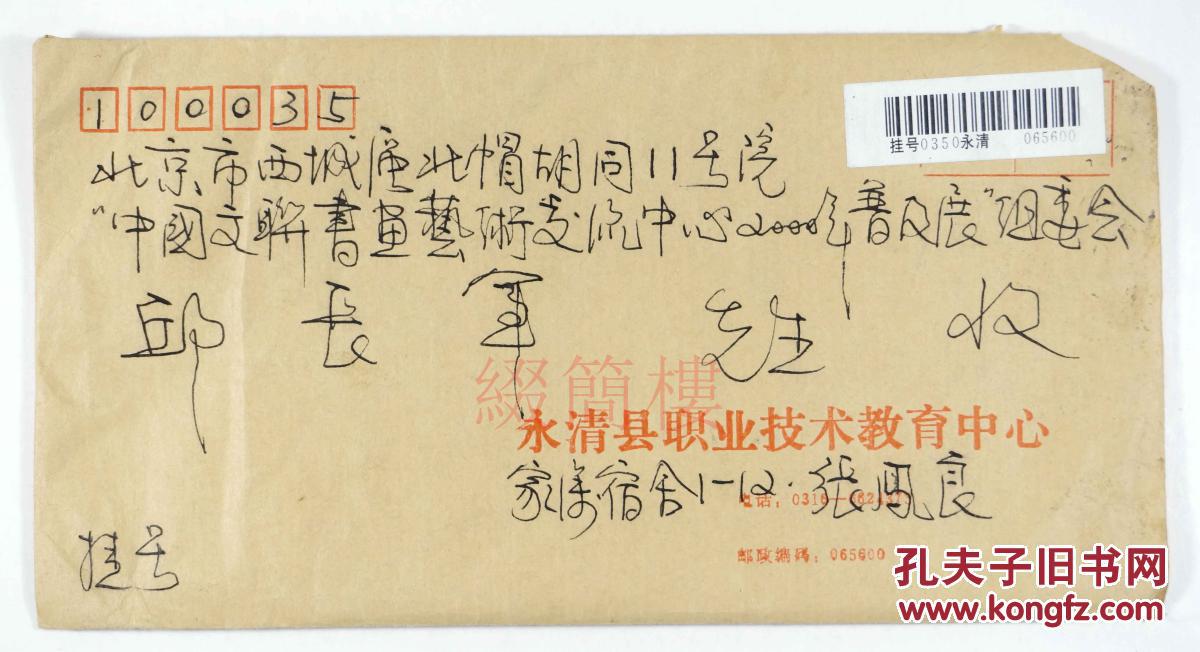 100035
挂号0350永清 065600
北京市西城区北帽胡同11号院
"中國文聯書畫藝術交流中心2000年普及展"组委会
邱長军 先生 收
綴簡樓
永清县职业技术教育中心
家属宿舍1-12·張凤良
电话：0316-
挂号
邮政编码：065600
孔夫子旧书网
www.kongfz.com